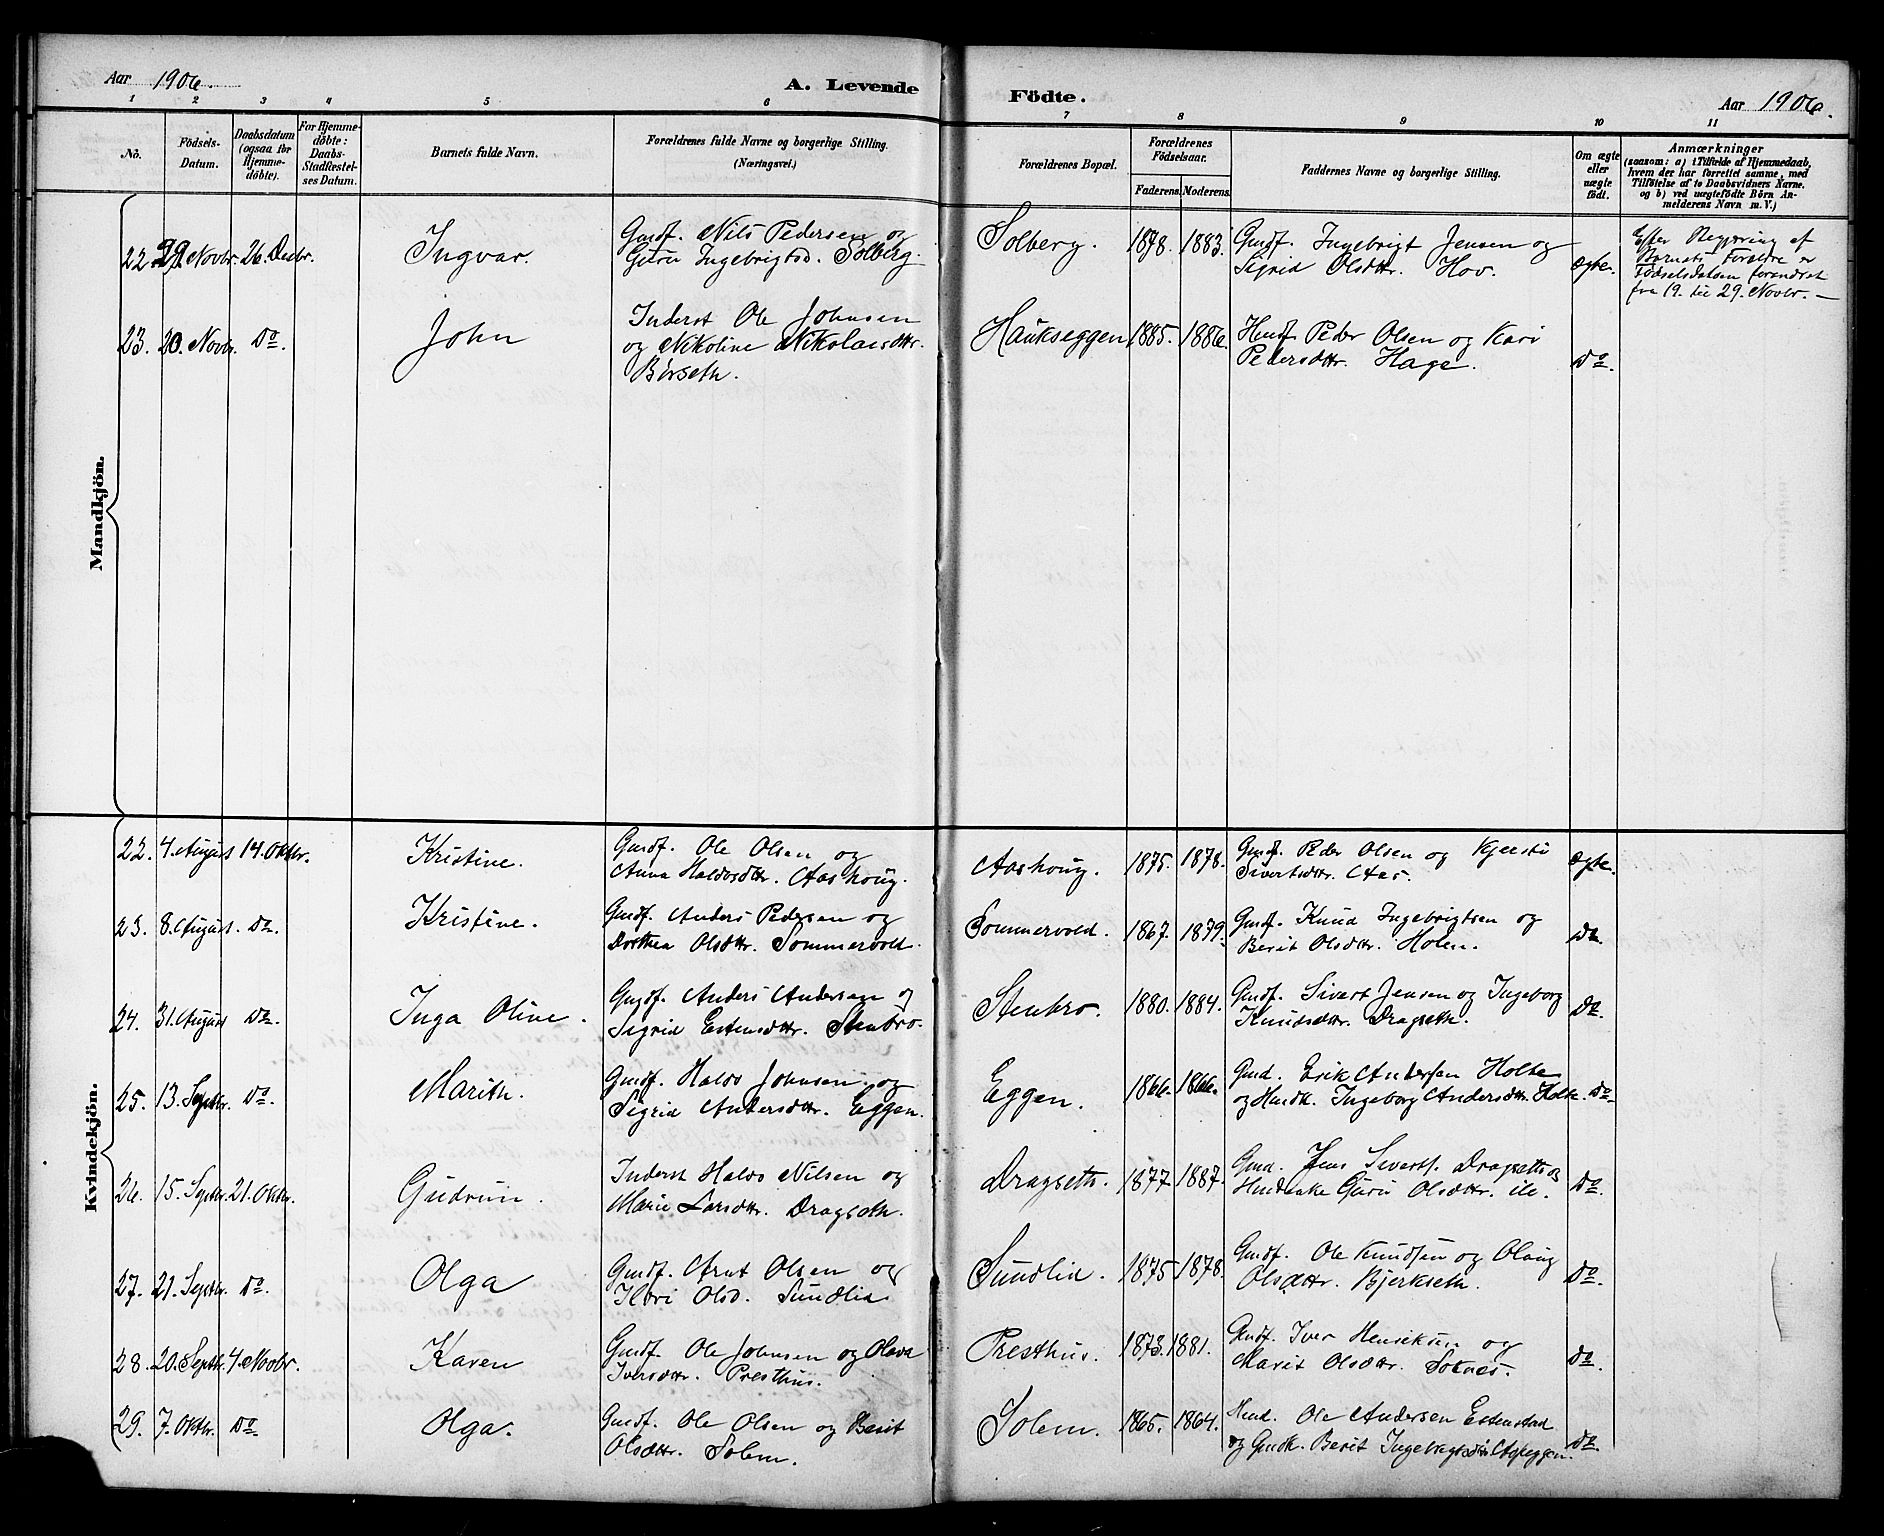 Aar 1906. A. Levende Födte. Aar 1906.
1 2 3 4 5 6 7 8 9 10 11
No. Födsels-Datum. Daabsdatum (ogsaa for Hjemme-döbte). For Hjemme-döbte: Daabs-Stadfæstel-ses Datum. Barnets fulde Navn. Forældrenes fulde Navne og borgerlige Stilling. (Næringsvei.) Forældrenes Bopæl. Forældrenes Födselsaar. Faderens. Moderens. Faddernes Navne og borgerlige Stilling. Om ægte eller uægte födt. Anmærkninger
(saasom: a) i Tilfælde af Hjemmedaab,
hvem der har forrettet samme, med
Tilföielse af to Daabsvidners Navne,
og b) ved uægtefödte Börn An-
melderens Navn m. V.)
Mandkjön.
22. 29. Novbr. 26. Decbr. Ingvar. Gmdf. Nils Pedersen og Solberg. 1878. 1883. Gmdf. Ingebrigt Jensen og ægte. Efter Begjæring af
Guru Ingebrigtsd. Solberg. Sigrid Olsdttr. Hov. Barnets Forældre er
Födselsdatoen forandret
fra 19. til 29. Novbr. —
23. 20. Novbr. Do. John Inderst Ole Johnsen Haukseggen 1885. 1886. Hmdf. Peder Olsen og Kari Do.
og Nikoline Nikolaisdttr. Pedersdttr. Hage.
Børseth.
Kvindekjön.
22. 4. August 14. Oktbr. Kristine. Gmdf. Ole Olsen og Aashoug. 1875. 1878. Gmdf. Peder Olsen og Kjersti ægte.
Anna Haldosdttr. Aashoug. Sivertsdttr. Aas.
23. 8. August. Do. Kristine. Gmdf. Anders Pedersen og Sommervold. 1867. 1879. Gmdf. Knud Ingebrigtsen og Do.
Dorthea Olsdttr. Sommervold. Berit Olsdttr. Holen.
24. 31. August Do. Inga Oline. Gmdf. Anders Andersen og Stenbro. 1880. 1884. Gmdf. Sivert Jensen og Ingeborg Do.
Sigrid Estensdttr. Stenbro. Knudsdttr. Dragseth.
25. 13. Septbr. Do. Marith. Gmdf. Haldo Johnsen og Eggen. 1866. 1866. Gmd. Erik Andersen Holte
Sigrid Andersdttr. Eggen. og Hmdk. Ingeborg Andersdttr. Holte. Do.
26. 15. Septbr. 21. Oktbr. Gudrun. Inderst Haldo Nilsen og Dragseth. 1877 1887. Gmd. Jens Siverts. Dragseth og Do.
Marie Larsdttr. Dragseth. Guru Olsdttr. ib.
27. 21. Septbr. Do. Olga Gmdf. Arnt Olsen og Sundlid. 1875 1878. Gmdf. Ole Knudsen og Olaug Do.
Olsd. Sundlid. Olsdttr. Bjerkseth.
28. 20. Septbr. 4. Novbr. Karen Gmdf. Ole Johnsen og Olava Presthus. 1873. 1881. Gmdf. Iver Henriksen og Do.
Iversdttr. Presthus. Marit Olsdttr. Soknes.
29. 7. Oktbr. Do. Olga. Gmdf. Ole Olsen og Berit Solem. 1865. 1864. Hmd. Ole Andersen Estenstad
Olsdttr. Solem. og Gmdk. Berit Do.